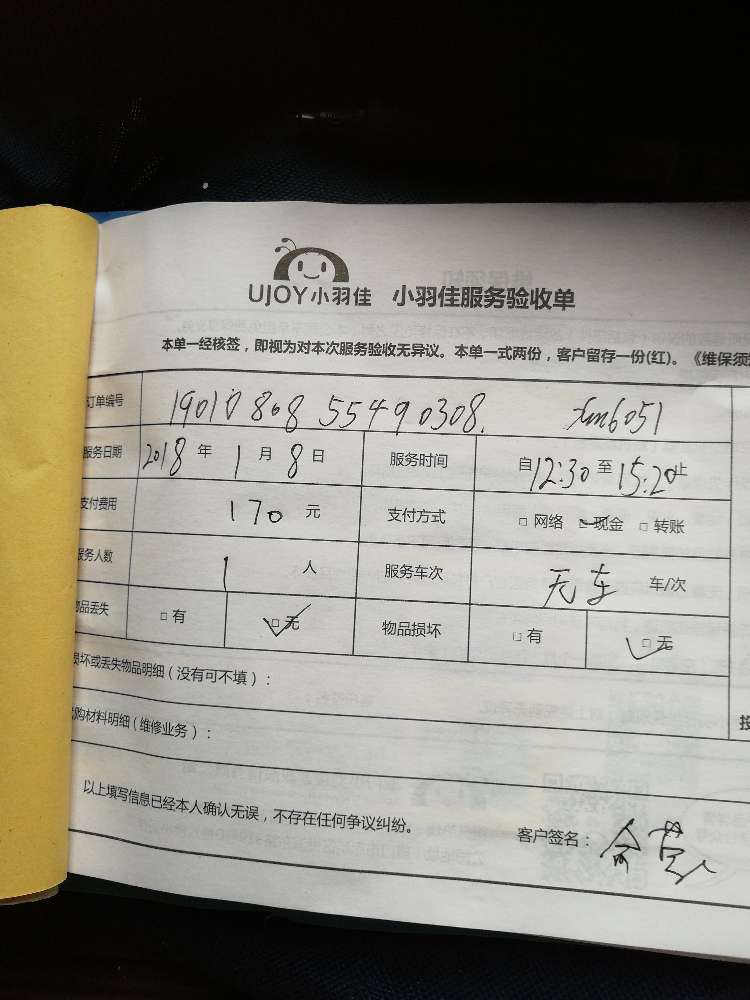 UJOY小羽佳 小羽佳服务验收单
本单一经核签，即视为对本次服务验收无异议。本单一式两份，客户留存一份(红)。《维保须知
订单编号 19010808 55490308. xm6051
服务日期 2018 年 1 月 8 日 服务时间 自 12:30 至 15:20 止
支付费用 170 元 支付方式 □ 网络 □ 现金 □ 转账
服务人数 1 人 服务车次 无车 车/次
物品丢失 □ 有 □ 无 物品损坏 □ 有 □ 无
损坏或丢失物品明细（没有可不填）：
购材料明细（维修业务）：
以上填写信息已经本人确认无误，不存在任何争议纠纷。
客户签名：